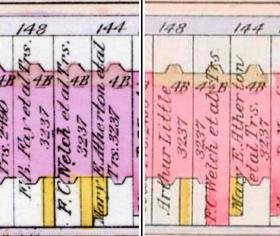 148 144
4B 4B 4B
Trs. 2490
F.B. Fay et al Trs.
3237
F.C Welch et al Trs.
3237
Mary E. Atherton et al
Trs. 3237
148 144
4B 4B 4B
Arthur Little
3237
3237
F.C. Welch et al Trs
Mary E. Atherton
et al. Trs.
3237